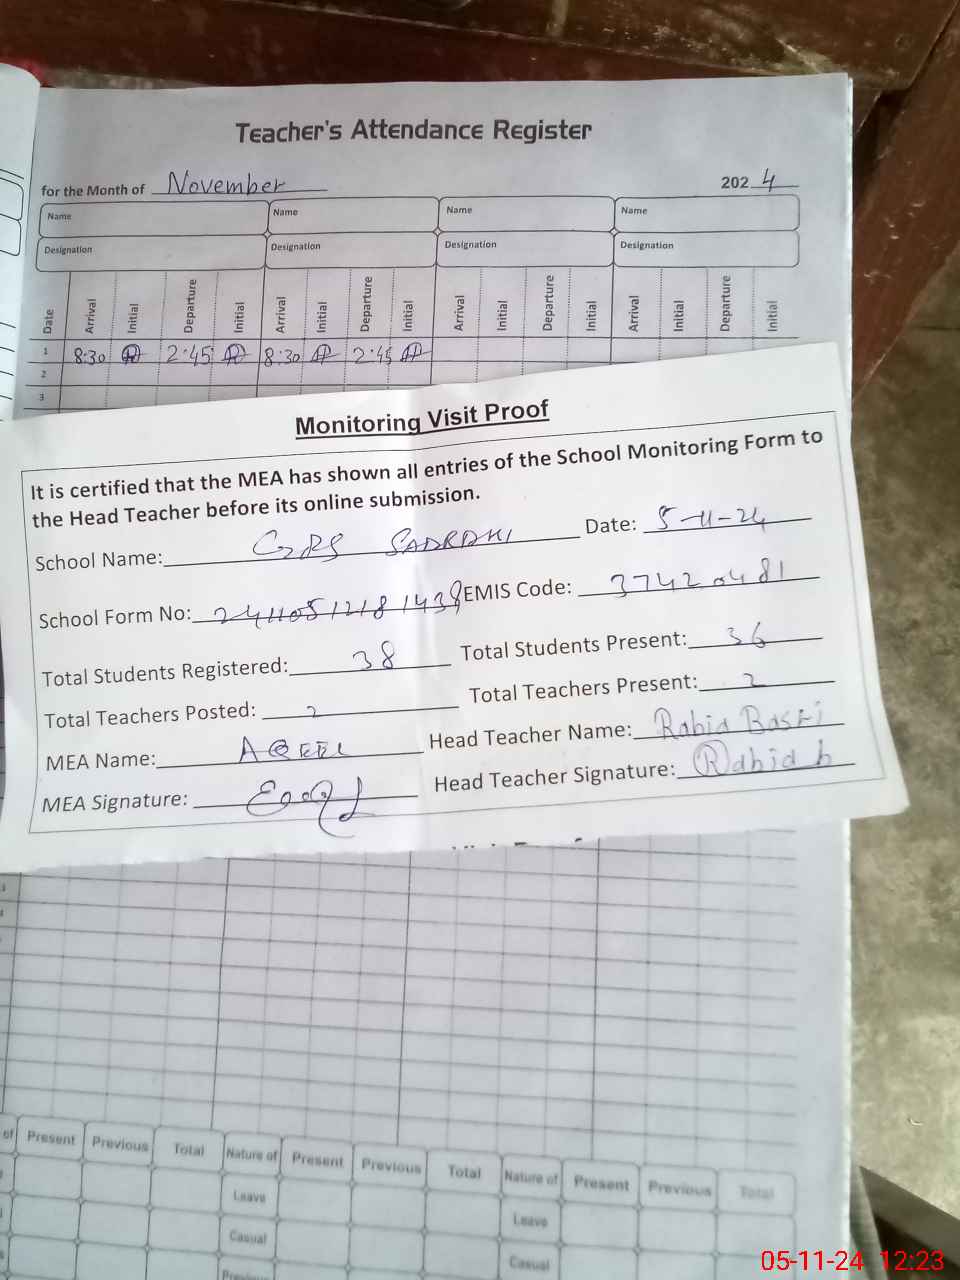 Teacher's Attendance Register
for the Month of November 2024
Name Name Name Name
Designation Designation Designation Designation
Date Arrival Initial Departure Initial Arrival Initial Departure Initial Arrival Initial Departure Initial Arrival Initial Departure Initial
1 8:30 2:45 8:30 2:45
2
3
Monitoring Visit Proof
It is certified that the MEA has shown all entries of the School Monitoring Form to
the Head Teacher before its online submission.
School Name: GPS SADRDHI Date: 5-11-24
School Form No: 24110512181438 EMIS Code: 37420481
Total Students Registered: 38 Total Students Present: 36
Total Teachers Posted: 2 Total Teachers Present: 2
MEA Name: AQEEL Head Teacher Name: Rabia Basri
MEA Signature: Head Teacher Signature: Rabia b
of Present Previous Total Nature of Present Previous Total Nature of Present Previous Total
Leave Leave
Casual Casual
Previous
05-11-24 12:23